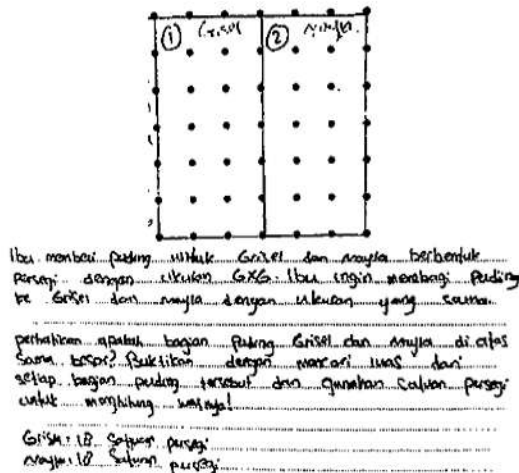 ① Grisel ② Nayla
Ibu memberi puding untuk Grisel dan nayla berbentuk
persegi dengan ukuran 6x6. Ibu ingin membagi puding
ke Grisel dan nayla dengan ukuran yang sama.
perhatikan apakah bagian puding Grisel dan nayla di atas
sama besar? Buktikan dengan mencari luas dari
setiap bagian puding tersebut dan gunakan satuan persegi
untuk menghitung luasnya!
Grisel: 18 satuan persegi
nayla: 18 satuan persegi